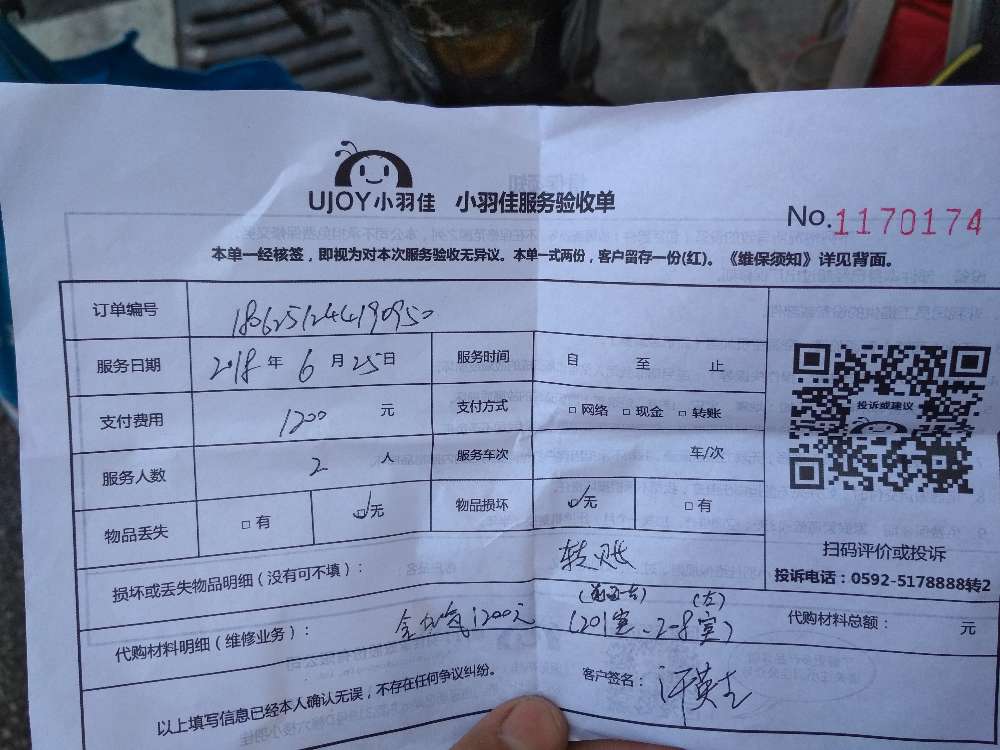 UJOY小羽佳 小羽佳服务验收单
No.1170174
本单一经核签，即视为对本次服务验收无异议。本单一式两份，客户留存一份(红)。《维保须知》详见背面。
订单编号
服务日期 2018年6月25日 服务时间 自 至 止
投诉或建议
支付费用 1200 元 支付方式 □网络 □现金 □转账
服务人数 2 人 服务车次 车/次
物品丢失 □有 ☑无 物品损坏 ☑无 □有
扫码评价或投诉
投诉电话：0592-5178888转2
损坏或丢失物品明细（没有可不填）： 转账
(左)
代购材料明细（维修业务）： 1200元 (201室、2-8室) 代购材料总额： 元
以上填写信息已经本人确认无误，不存在任何争议纠纷。 客户签名：